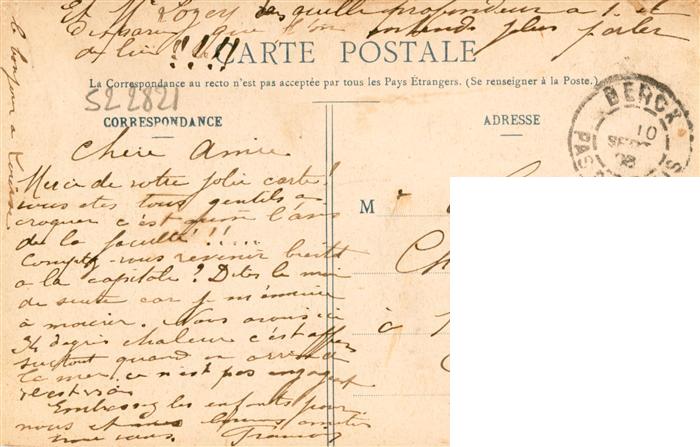 Et Mr Lozey des quelle profondeur a t et
disparu que l'on entends plus parler
de lui !!!!!
CARTE POSTALE
La Correspondance au recto n'est pas acceptée par tous les Pays Étrangers. (Se renseigner à la Poste.)
522821
CORRESPONDANCE
Chère Amie
Merci de votre jolie carte!
vous etes tous gentils a
croquer c'est l'avis
de la faculté!!....
Comptez-vous revenir bientôt
a la capitale? Dites le moi
de suite car je m'ennuie
à mourir. Nous avons ici
degrés chaleur c'est affreux
surtout quand on arrive de
la mer, ce n'est pas engageant
c'est vrai
Embrassez les enfants pour
nous et amitiés
pour vous. Francis
le bonjour a Louise
ADRESSE
BERCK
10
SEPT
08
PAS
M r
Ch
à